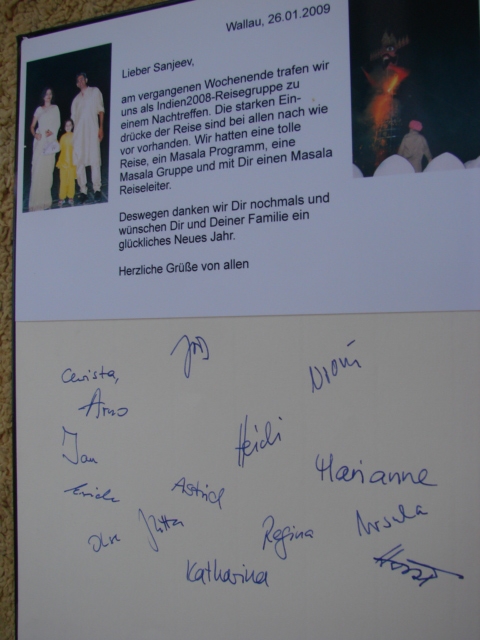 Wallau, 26.01.2009
Lieber Sanjeev,
am vergangenen Wochenende trafen wir
uns als Indien2008-Reisegruppe zu
einem Nachtreffen. Die starken Ein-
drücke der Reise sind bei allen nach wie
vor vorhanden. Wir hatten eine tolle
Reise, ein Masala Programm, eine
Masala Gruppe und mit Dir einen Masala
Reiseleiter.
Deswegen danken wir Dir nochmals und
wünschen Dir und Deiner Familie ein
glückliches Neues Jahr.
Herzliche Grüße von allen
Arno
Heidi
Jan
Marianne
Astrid
Ursula
Regina
Katharina